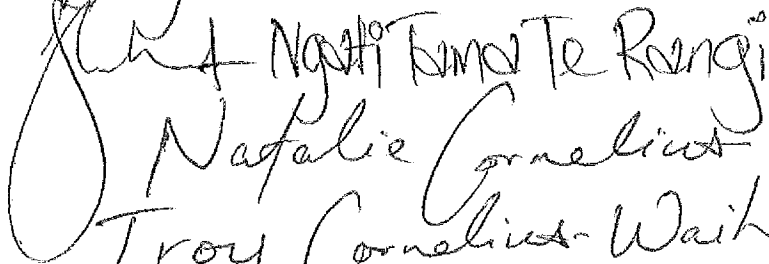 Ngati Tama Te Rangi
Natalie Cornelius
Troy Cornelius-Waih